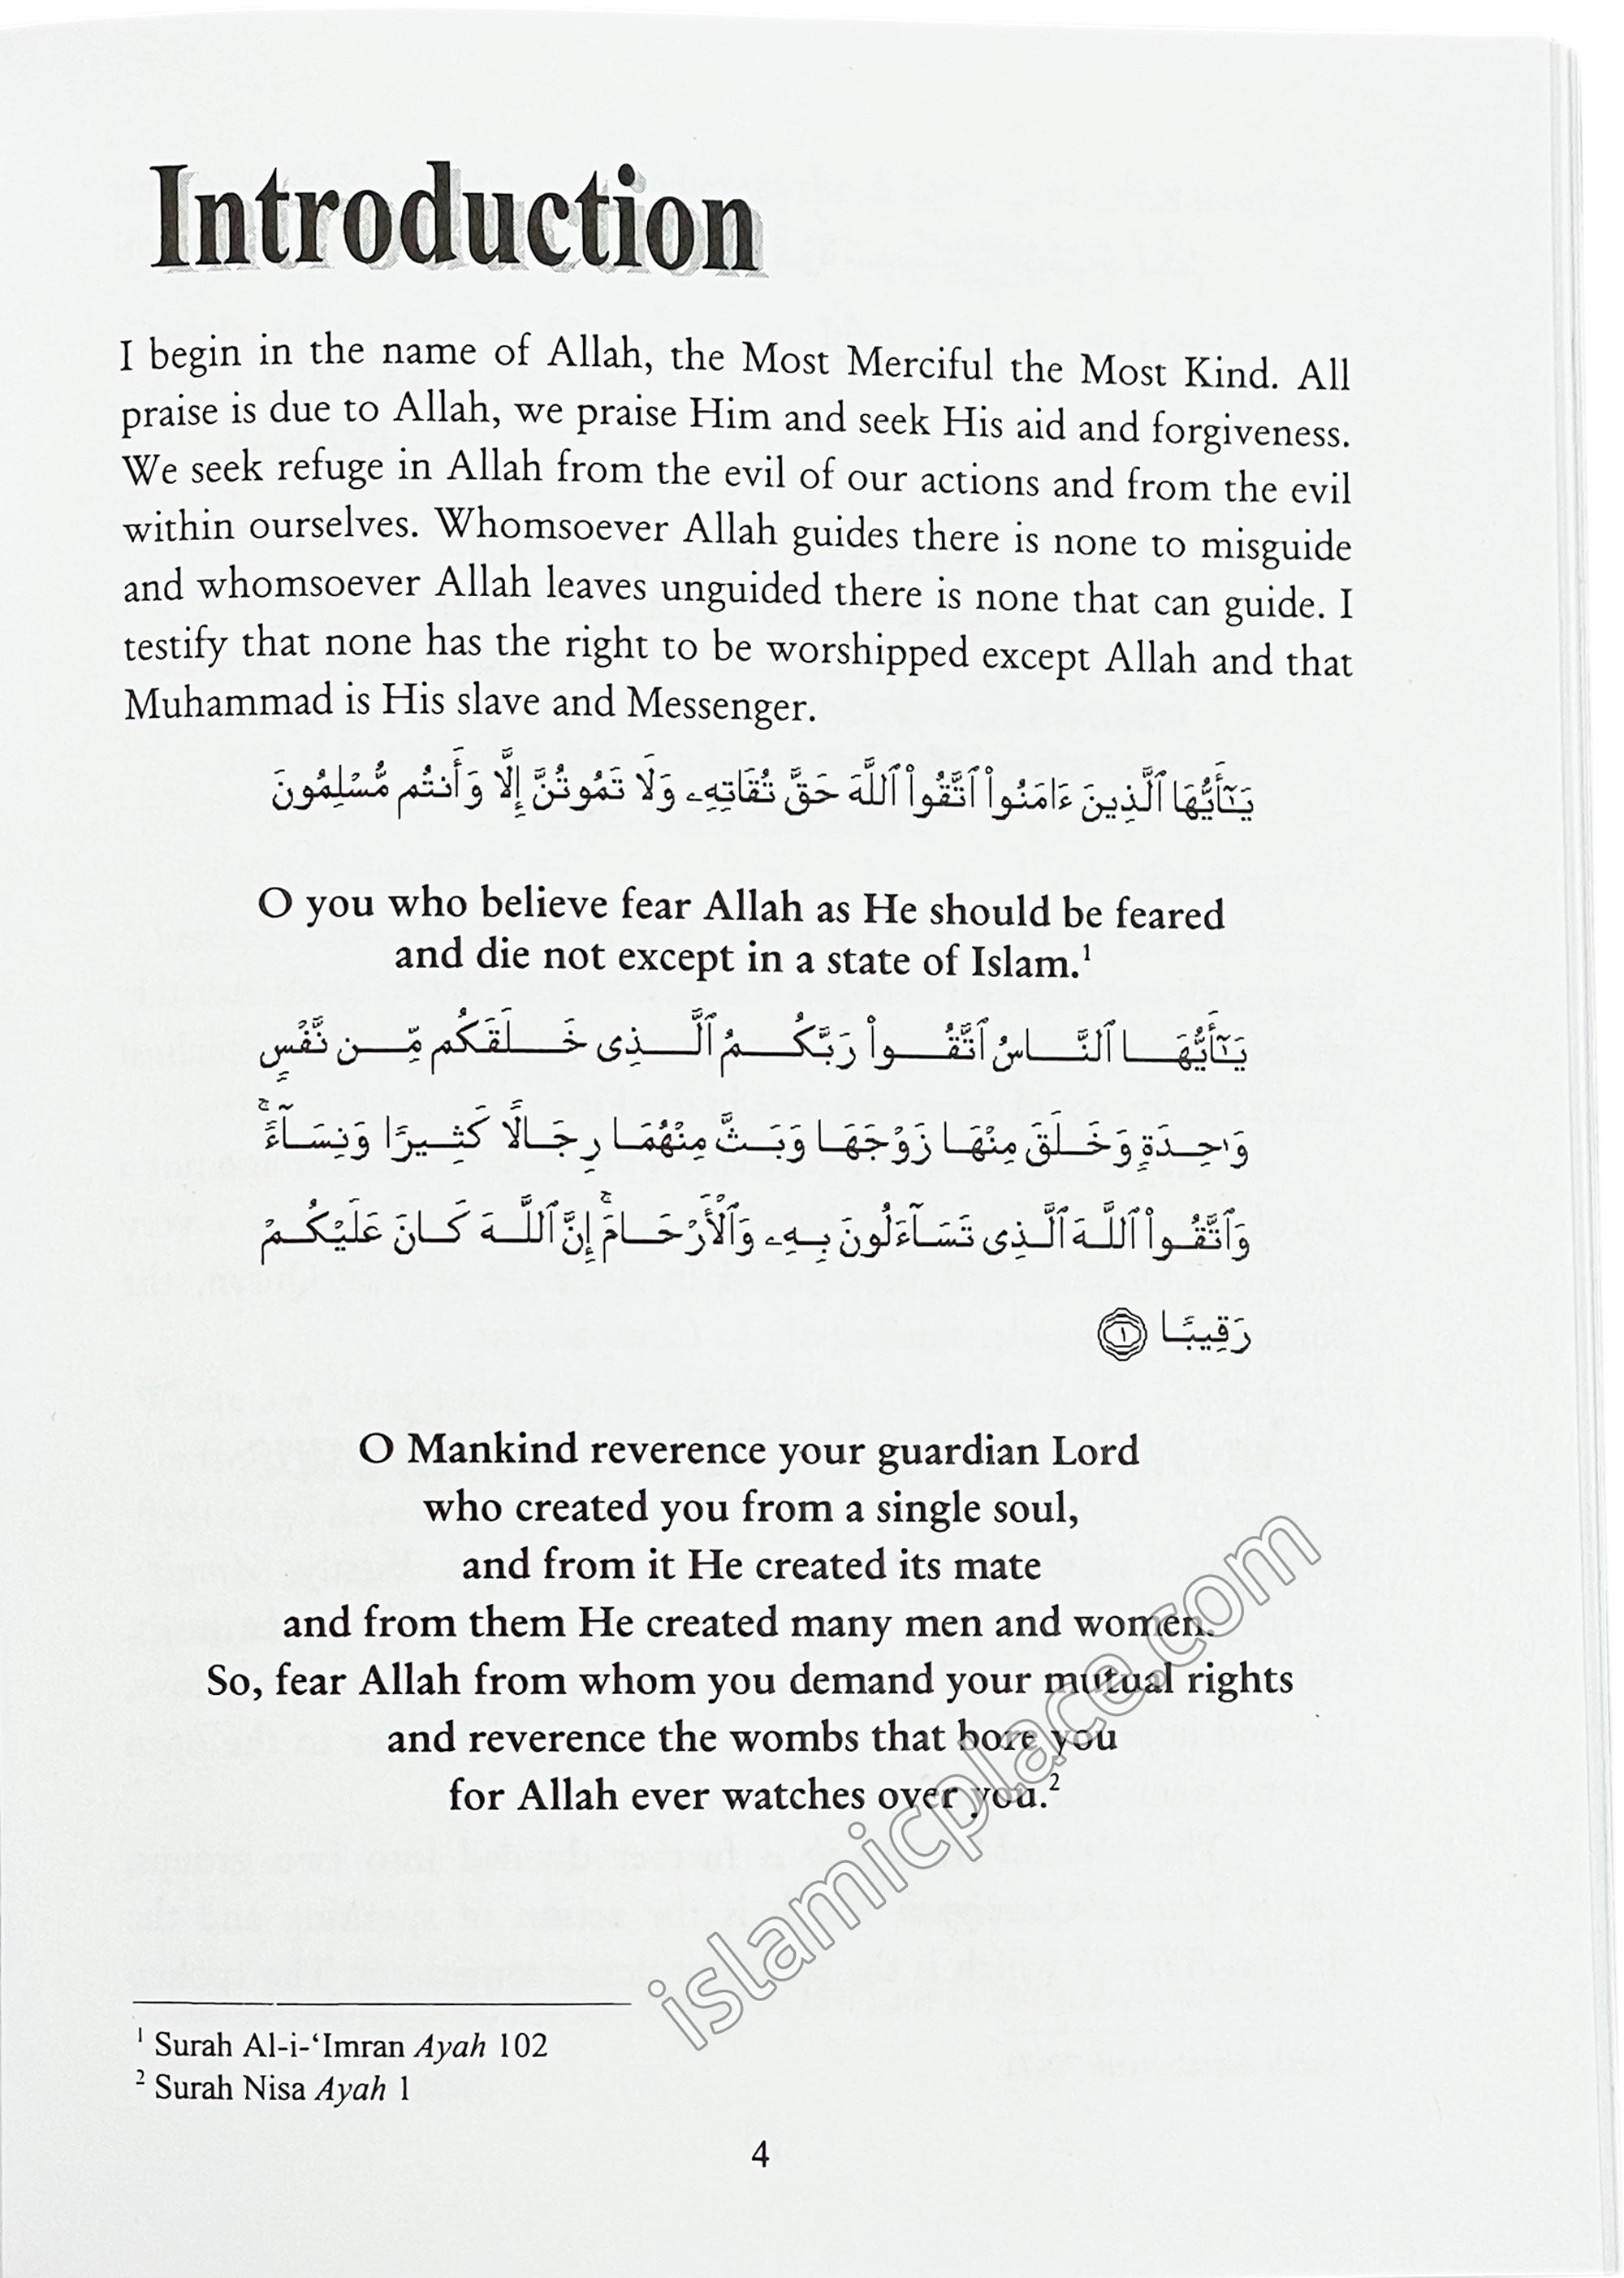 Introduction
I begin in the name of Allah, the Most Merciful the Most Kind. All
praise is due to Allah, we praise Him and seek His aid and forgiveness.
We seek refuge in Allah from the evil of our actions and from the evil
within ourselves. Whomsoever Allah guides there is none to misguide
and whomsoever Allah leaves unguided there is none that can guide. I
testify that none has the right to be worshipped except Allah and that
Muhammad is His slave and Messenger.
يَـٰٓأَيُّهَا ٱلَّذِينَ ءَامَنُوا۟ ٱتَّقُوا۟ ٱللَّهَ حَقَّ تُقَاتِهِۦ وَلَا تَمُوتُنَّ إِلَّا وَأَنتُم مُّسْلِمُونَ
O you who believe fear Allah as He should be feared
and die not except in a state of Islam.¹
يَـٰٓأَيُّهَا ٱلنَّاسُ ٱتَّقُوا۟ رَبَّكُمُ ٱلَّذِى خَلَقَكُم مِّن نَّفْسٍ
وَٰحِدَةٍ وَخَلَقَ مِنْهَا زَوْجَهَا وَبَثَّ مِنْهُمَا رِجَالًا كَثِيرًا وَنِسَآءً ۚ
وَٱتَّقُوا۟ ٱللَّهَ ٱلَّذِى تَسَآءَلُونَ بِهِۦ وَٱلْأَرْحَامَ ۚ إِنَّ ٱللَّهَ كَانَ عَلَيْكُمْ
رَقِيبًا ١
O Mankind reverence your guardian Lord
who created you from a single soul,
and from it He created its mate
and from them He created many men and women.
So, fear Allah from whom you demand your mutual rights
and reverence the wombs that bore you
for Allah ever watches over you.²
islamicplace.com
¹ Surah Al-i-‘Imran Ayah 102
² Surah Nisa Ayah 1
4